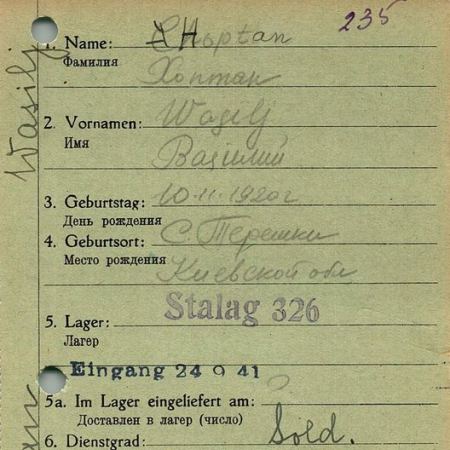 235
1. Name: Choptan
Фамилия Хоптан
2. Vornamen: Wasilj
Имя Василий
3. Geburtstag: 10.11.1920г
День рождения
4. Geburtsort: С. Терешки
Место рождения Киевской обл
Stalag 326
5. Lager:
Лагерь
Eingang 24 9 41
5a. Im Lager eingeliefert am: ?
Доставлен в лагерь (число)
6. Dienstgrad: Sold.
Wasilj